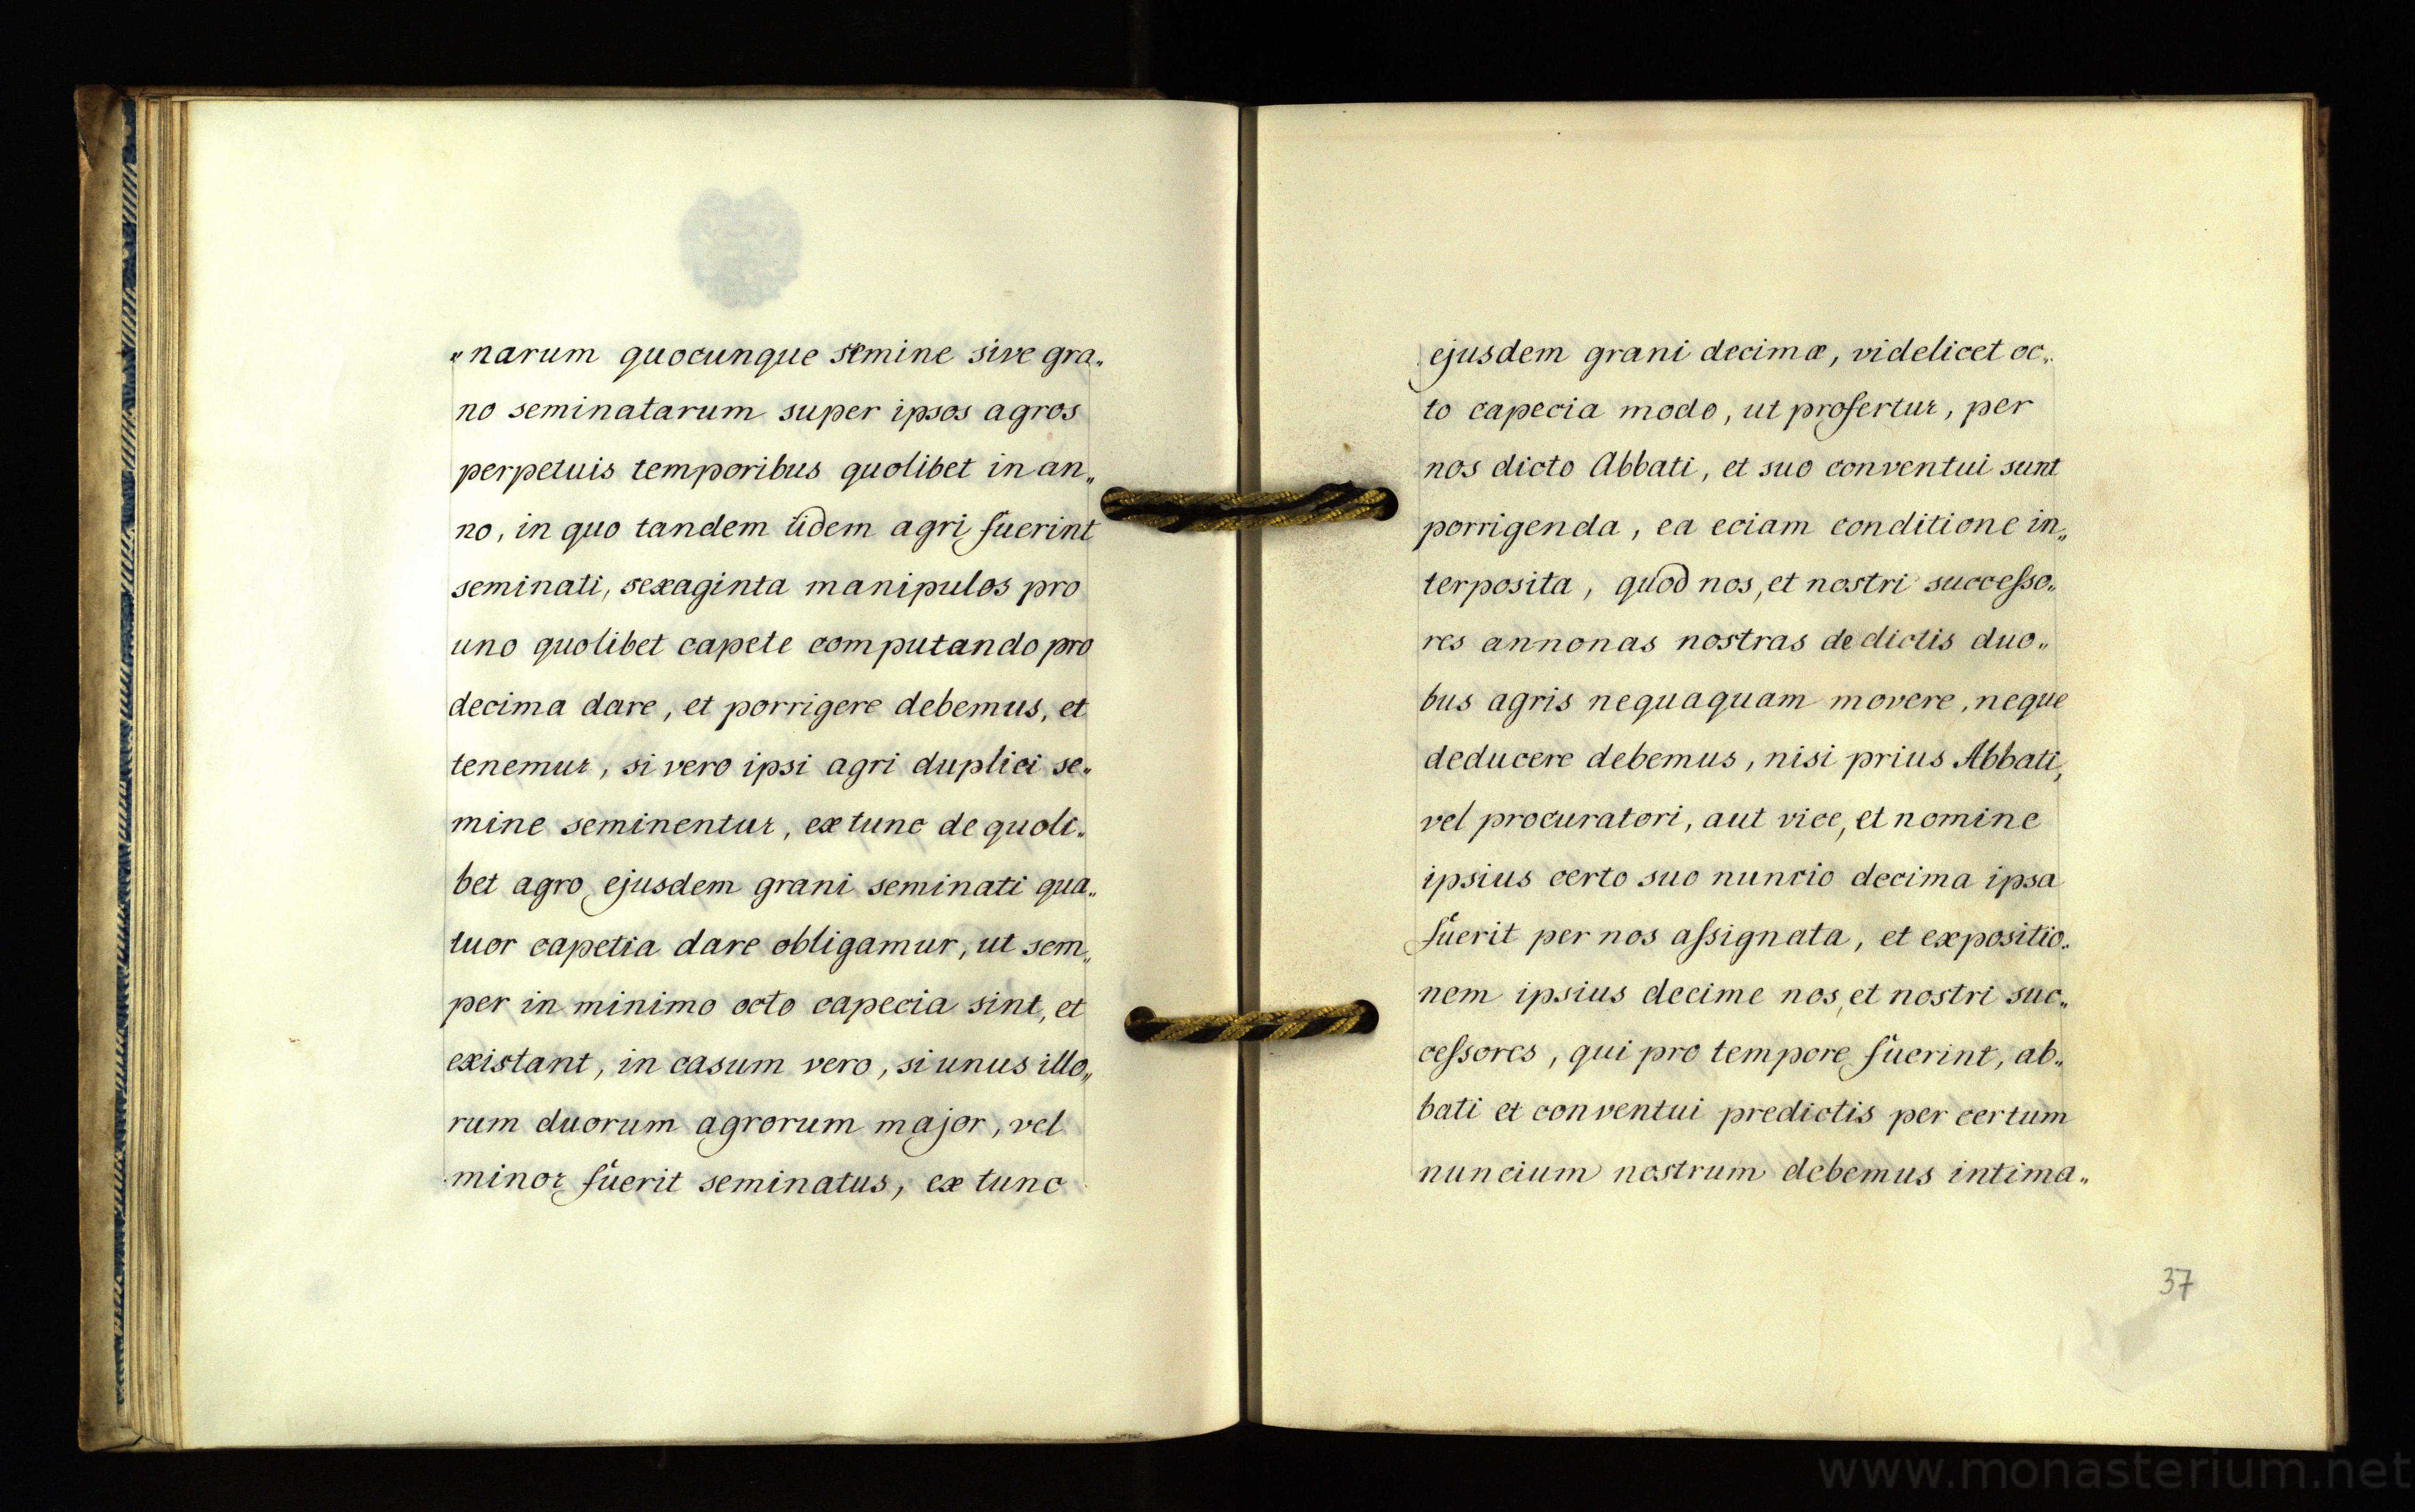 „narum quocunque semine sive gra„
no seminatarum super ipsos agros
perpetuis temporibus quolibet in an„
no, in quo tandem iidem agri fuerint
seminati, sexaginta manipulos pro
uno quolibet capete computando pro
decima dare, et porrigere debemus, et
tenemur, si vero ipsi agri duplici se„
mine seminentur, ex tunc de quoli„
bet agro ejusdem grani seminati qua„
tuor capetia dare obligamur, ut sem„
per in minimo octo capecia sint, et
existant, in casum vero, si unus illo„
rum duorum agrorum major, vel
minor fuerit seminatus, ex tunc
ejusdem grani decimæ, videlicet oc„
to capecia modo, ut profertur, per
nos dicto Abbati, et suo conventui sunt
porrigenda, ea eciam conditione in„
terposita, quod nos, et nostri succeſso„
res annonas nostras de dictis duo„
bus agris nequaquam movere, neque
deducere debemus, nisi prius Abbati,
vel procuratori, aut vice, et nomine
ipsius certo suo nuncio decima ipsa
fuerit per nos aſsignata, et expositio„
nem ipsius decime nos, et nostri suc„
ceſsores, qui pro tempore fuerint, ab„
bati et conventui predictis per certum
nuncium nostrum debemus intima„
37
www.monasterium.net